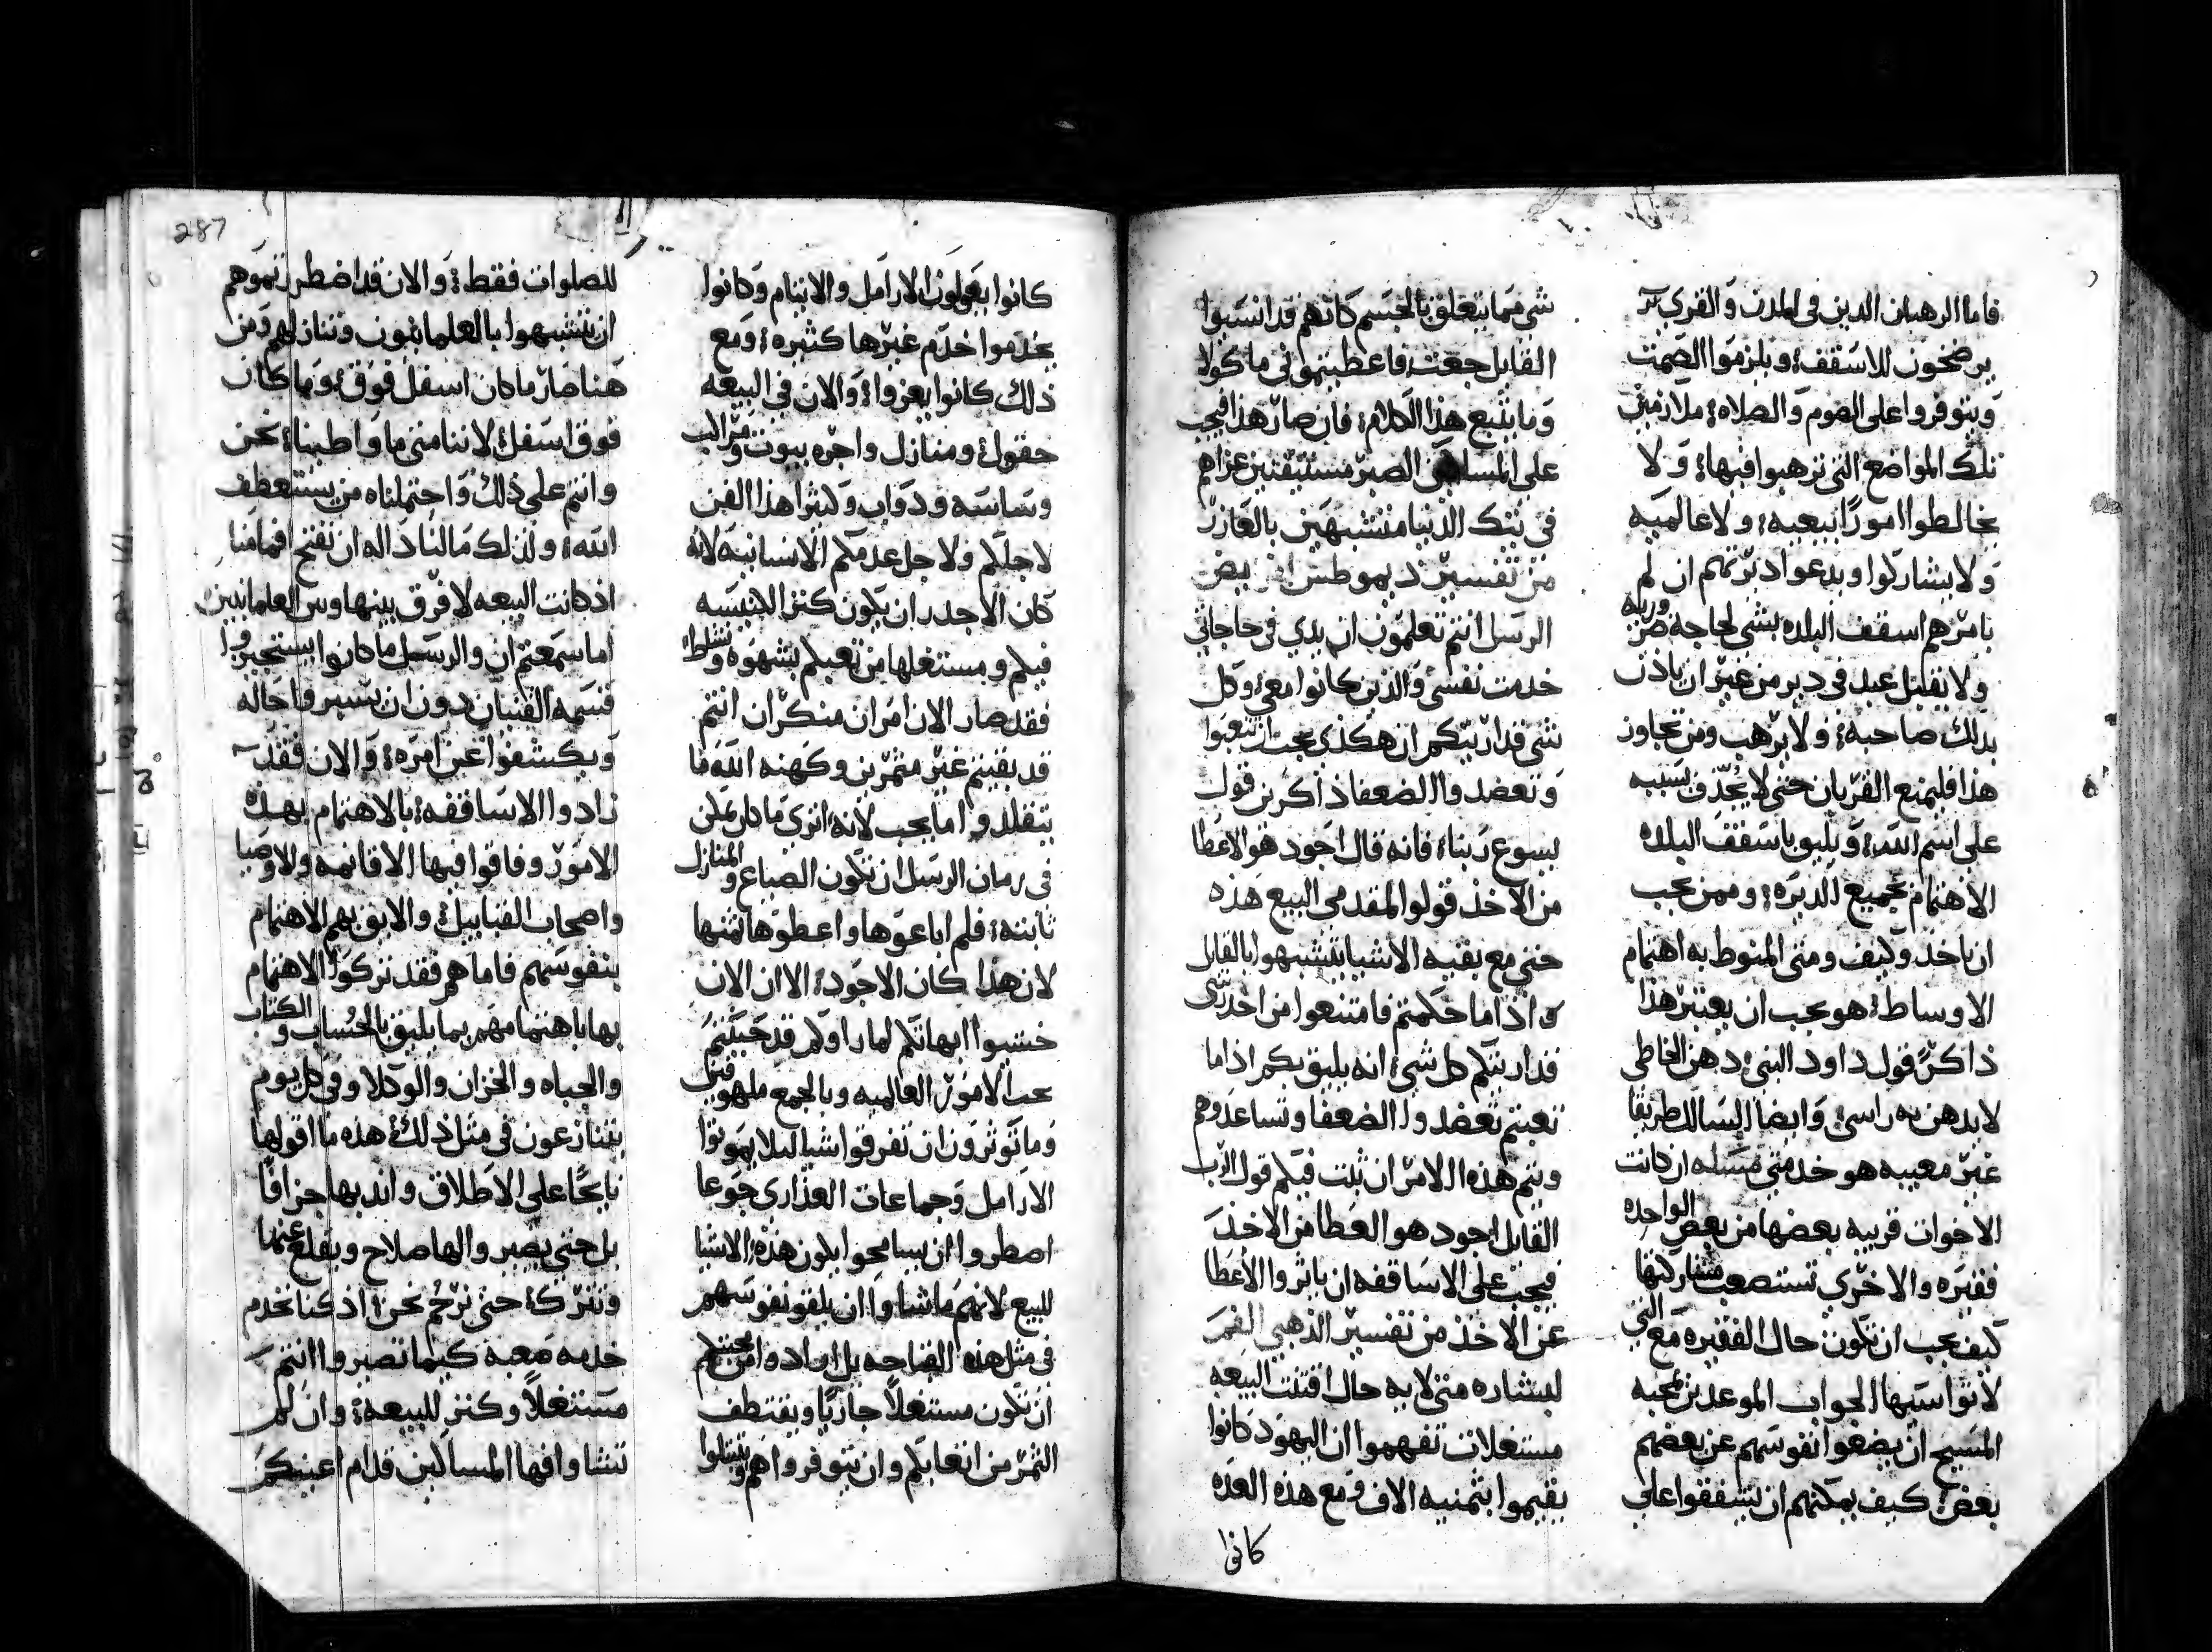 فاما الرهبان الدين في المدن والقري
يرضخون للاسقف؛ ويلزموا الصمت
ويتوفروا على الصوم والصلاه؛ ملازمين
تلك المواضع التي ترهبوا فيها؛ ولا
يخالطوا امورًا بيعيه؛ ولا عالميه
ولا يشاركوا ويدعوا ديرتهم ان لم
يامرهم اسقف البلده بشي لحاجه ضروريه
ولا يقبل عبد في دير من غير ان ياذن
بدلك صاحبه؛ ولا يرهب ومن تجاوز
هذا فليمنع القربان حتى لا يجدف بسببه
على اسم الله؛ ويليق باسقف البلده
الاهتمام بجميع الديره؛ وممن يجب
ان ياخذ وكيف ومتى المنوط به اهتمام
الاوساط؛ هو يجب ان يعتبر هذا
ذاكرً قول داود النبي؛ دهن الخاطي
لا يدهن به راسي؛ وايضا السالك طريقا
غير معيبه هو خدمني مسله ان كانت
الاخوات قريبه بعضها من بعض الواحده
فقيره والاخري تستصعب مشاركتها
كيف يجب ان تكون حال الفقيره مع التي
لا تواسيها الجواب الموعدين بمحبه
المسيح ان يضعوا نفوسهم عن بعضهم
بعض؛ كيف يمكنهم ان يشفقوا على
شي مما يتعلق بالجسم كانهم قد انسيوا
القايل جعت؛ فاعطيتموني ماكولا
وما يتبع هذا الكلام؛ فان صار هذا فيجب
على المساكين الصبر مستيقنين عزاهم
في تيك الدنيا متشبهين بالعازر
من تفسير ديموطس
الرسل انتم تعلمون ان يدي في حاجاتي
خدمت نفسي؛ والذين كانوا معي؛ وكل
شي قد اريتكم ان هكذي يجب ان تتعبوا
وتعضدوا الضعفا ذاكرين قول
يسوع ربنا؛ فانه قال اجود هو الاعطا
من الاخذ قولوا لمقدمي البيع هذه
حتى مع بقيه الاشيا يتشبهوا بالقايل
اذ اما حكمتم فامتنعوا من اخذ شي
قد اريتكم كل شي؛ انه يليق بكم اذا ما
تعبتم تعضدوا الضعفا وتساعدوهم
ويتم هذه الامر ان ثبت فيكم قول الرب
القايل اجود هو العطا من الاخذ
فيجب على الاساقفه ان ياثروا الاعطا
عن الاخذ من تفسير الذهبي الفم
لبشاره متى لايه حال اقتنت البيعه
مستغلات تفهموا ان اليهود كانوا
يقيموا بثمنيه الاف ومع هذه العده
كانوا
كانوا يعولون الارامل والايتام وكانوا
يخدموا خدم غيرها كثيره؛ ومع
ذلك كانوا يعزوا؛ والان في البيعه
حقول؛ ومنازل واجره بيوت ومراكب
وساسه ودواب وكثرا هذا الفن
لاجلكم ولاجل عدمكم الانسانيه لانه
كان الاجدر ان يكون كنز الكنيسه
فيكم ومستغلها من تعبكم بشهوه ونشاط؛
فقد صار الان امران منكران انتم
قد بقيتم غير مثمرين وكهنه الله ما
يتقلدوا ما يجب لانه؛ اتري ما كان يمكن
في زمان الرسل ان تكون الضياع والمنازل
ثابته؛ فلم اباعوها واعطوها ثمنها
لان هذا كان الاجود؛ الا ان الان
خشيوا ابهاتكم لما راوكم قد خيبتم
محب الامور العالميه وبالجمع ملهوفين
وما توثرون ان تفرقوا شيا ليلا يموتوا
الارامل وجماعات العذاري جوعا
اضطروا ان يسامحوا بكون هذه الاشيا
للبيع لانهم ما شاوا ان يلقوا نفوسهم
في مثل هذه القباحه بل ارادوا من محبتكم
ان تكون مستغلاً جاريًا ويقتطف
الثمر من اتعابكم وان يتوفروا هم ويتسلوا
للصلوات فقط؛ والان قد اضطررتموهم
ان يتشبهوا بالعلمانيون وتنازلهم ومن
هنا صار ما كان اسفل فوق؛ وما كان
فوق اسفل؛ لاننا متى ما واطينا؛ نحن
وانتم على ذلك؛ واحتملناه من يستعطف
الله؛ ولذلك ما لنا داله ان نفتح افمامنا
اذ كانت البيعه لا فرق بينها وبين العلمانيين
اما سمعتم ان والرسل ما كانوا يستجيزوا
قسمه القنيان دون ان تسير واحاله
ويكشفوا عن امره؛ والان فقد
زادوا الاساقفه؛ بالاهتمام بهذه
الامور وفاقوا فيها الاقانمه والاوصيا
واصحاب القبابيل؛ والاليق بهم الاهتمام
بنفوسهم فاما هم فقد تركوا الاهتمام
بها باهتمامهم بما يليق بالحساب والكتاب
والجباه والخزان والوكلا وفي كل يوم
يتنازعون في مثل ذلك؛ هذه ما اقولها
نايحًا على الاطلاق واندبها جزافًا
بل حتى يصير والها صلاح ويقلع عنها
ونترك؛ حتى نرحم نحن؛ اذ كنا نخدم
خدمه صعبه كيما تصيروا انتم
مستغلاً وكنز للبيعه؛ وان لم
تشاوا فها المساكين قدام اعينكم
287